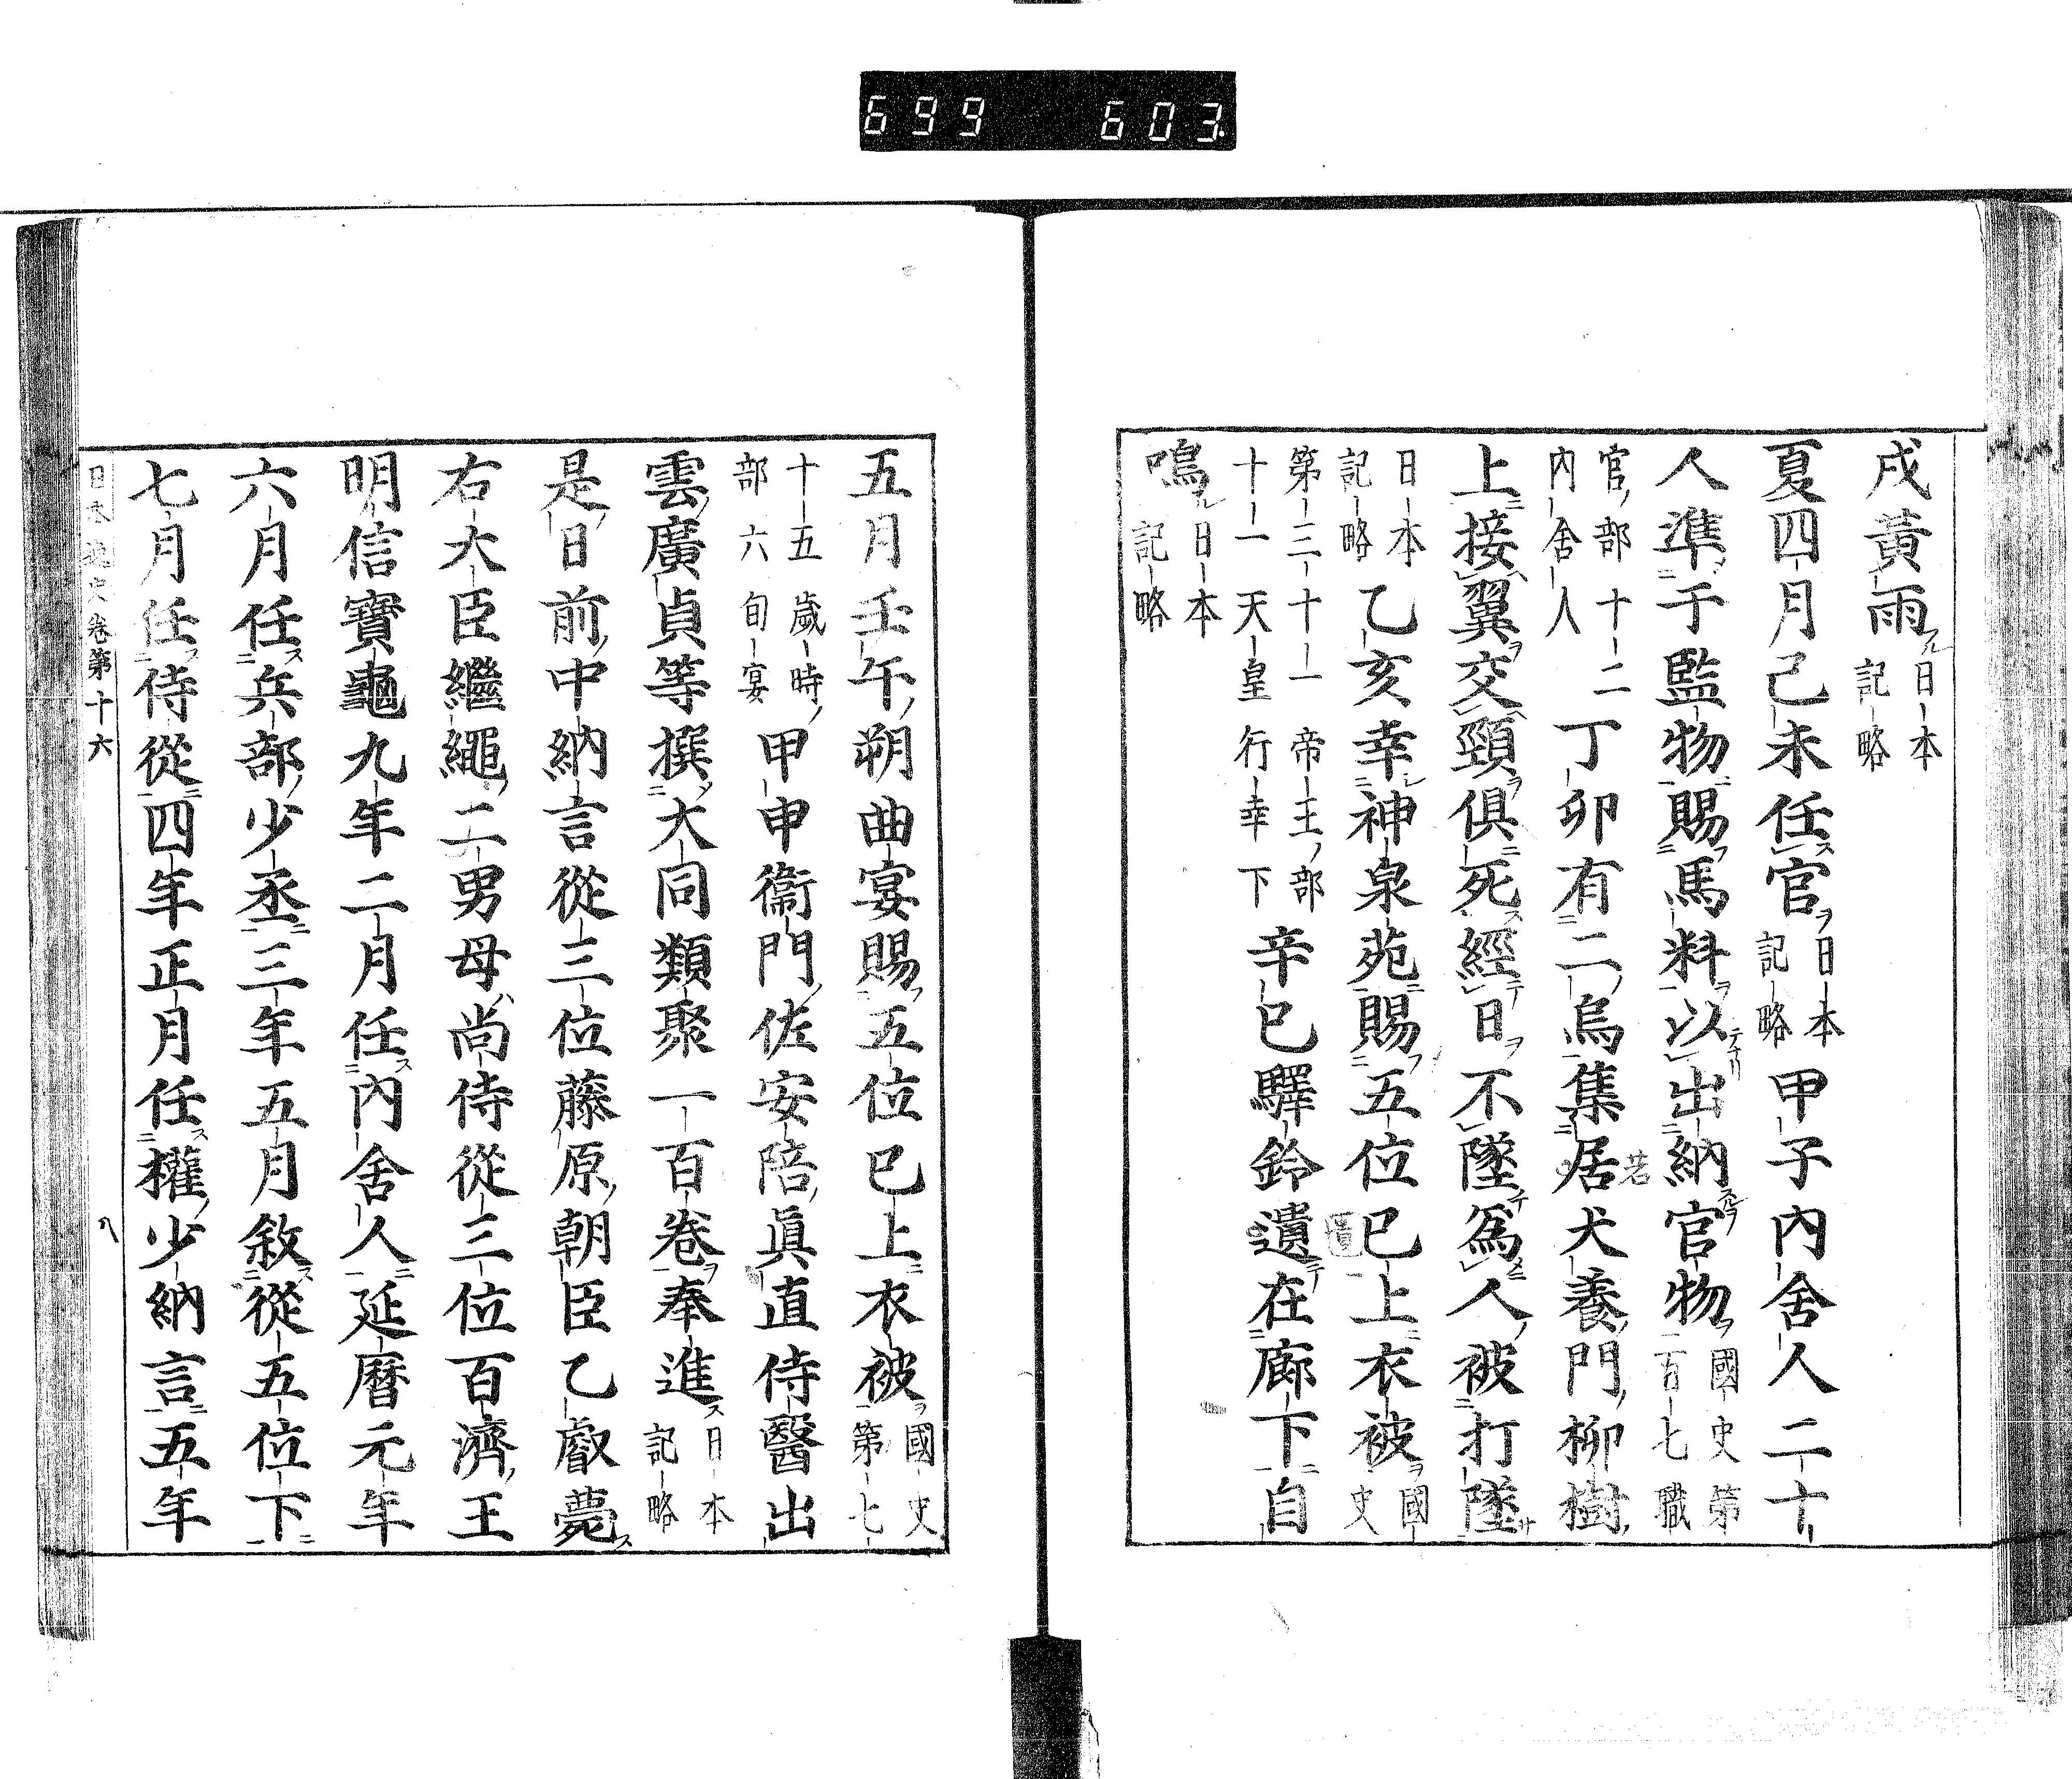 699 603
戌黄雨日本記略
夏四月己未任官日本記略甲子内舍人二十
人準于監物賜馬料以出納官物國史第一百七職
官部十二内舍人丁卯有二烏集若居犬養門柳樹
上接翼交頸俱死經日不墜爲人被打墜
日本記略乙亥幸神泉苑賜五位已上衣被國史
第三十一帝王部十一天皇行幸下辛巳驛鈴遺在廊下自
鳴日本記略
五月壬午朔曲宴賜五位已上衣被國史第七
十五歲時部六旬宴甲申衞門佐安陪眞直侍醫出
雲廣貞等撰大同類聚一百卷奉進日本記略
是日前中納言從三位藤原朝臣乙叡薨
右大臣繼繩二男母尚侍從三位百濟王
明信寶龜九年二月任内舍人延曆元年
六月任兵部少丞三年五月敘從五位下
七月任侍從四年正月任權少納言五年
日本逸史卷第十六 八